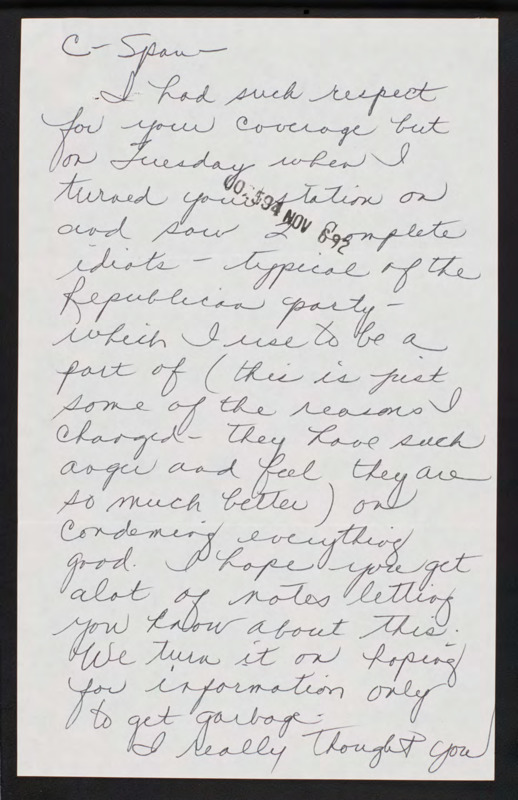 C-Span -
I had such respect
for your coverage but
on Tuesday when I
turned your station on
and saw 2 complete
idiots - typical of the
Republican party -
which I use to be a
part of (this is just
some of the reasons I
changed - they have such
anger and feel they are
so much better) on
condeming everything
good. I hope you get
alot of notes letting
you know about this.
We turn it on hoping
for information only
to get garbage.
I really thought you
NOV 692